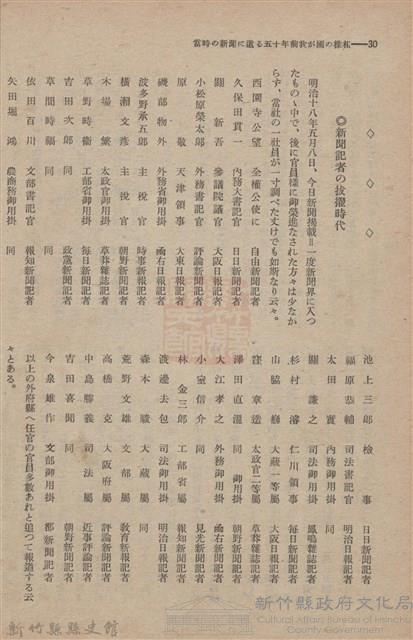 當時の新聞に遺る五十年前我が國の樣相——30
◇ ◇ ◇
◎新聞記者の拔擢時代
明治十八年五月八日、今日新聞揭載＝一度新聞界に入つ
たものゝ中で、後に官員樣に御榮進なされた方々は少なか
らず、當社の一社員が一寸調べた丈けでも如斯なり云々。
西園寺公望 全權公使に 自由新聞記者
久保田貫一 內務大書記官 日日新聞記者
關新吾 參議院議官 大阪日報記者
小松原榮太郎 外務書記官 評論新聞記者
原敬 天津領事 大東日報記者
磯部物外 外務省御用掛 函右日報記者
波多野承五郎 同 時事新報記者
橫瀨文彥 主稅官 朝野新聞記者
木場繁 太政官御用掛 草莽雜誌記者
草野時衞 工部省御用掛 每日新聞記者
吉田次郎 同 政黨新聞記者
草間時福 同 朝野新聞記者
依田百川 文部書記官 報知新聞記者
矢田堀鴻 農商務御用掛 同
池上三郎 檢事 日日新聞記者
福原恭輔 司法書記官 明治日報記者
太田實 內務御用掛 同
關謙之 司法御用掛 鳳鳴雜誌記者
杉村濬 仁川領事 每日新聞記者
山脇巍 大藏一等屬 大阪日報記者
窪章造 太政官二等屬 草莽雜誌記者
澤田直溫 同 御用掛 朝野新聞記者
大江孝之 外務御用掛 函右新聞記者
小室信介 同 見光新聞記者
林金三郎 工部省屬 報知新聞記者
渡邊去包 司法御用掛 明治日報記者
森本駿 大藏屬 同
荒野文雄 文部屬 教育新報記者
高橋克 大阪府屬 評論新聞記者
中島勝義 司法屬 近事評論記者
吉田喜聞 同 朝野新聞記者
今泉雄作 文部御用掛 都新聞記者
以上の外府縣へ任官の官員多數あれと追つて報道する云
々とある。
新竹縣縣史館
新竹縣政府文化局
Cultural Affairs Bureau of Hsinchu County Government